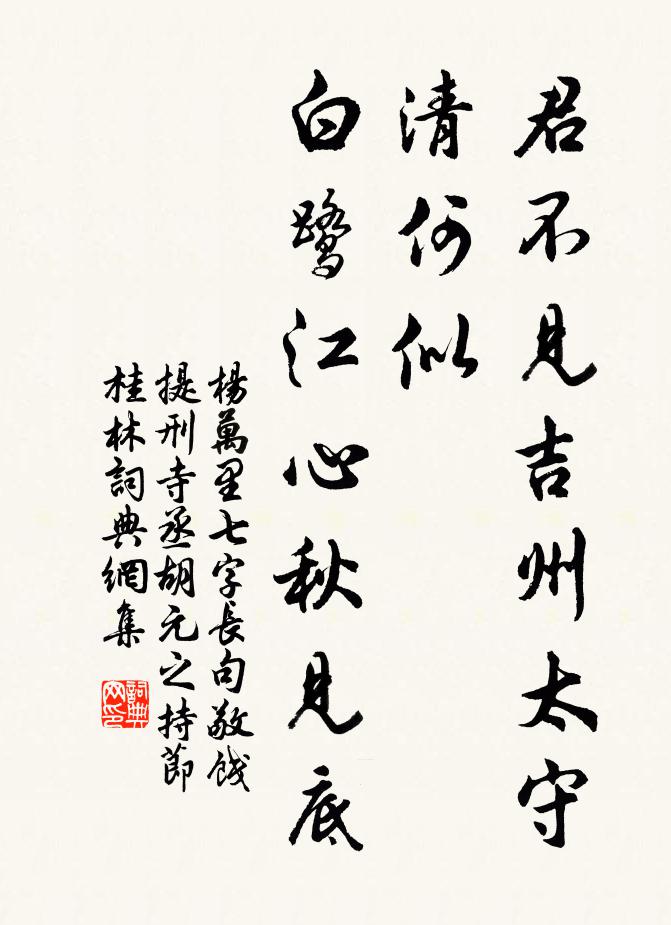 君不見吉州太守
清何似
白鹭江心秋見底
楊萬里七字長句敬餞
提刑寺丞胡元之持節
桂林詞典網集
詞典
网印